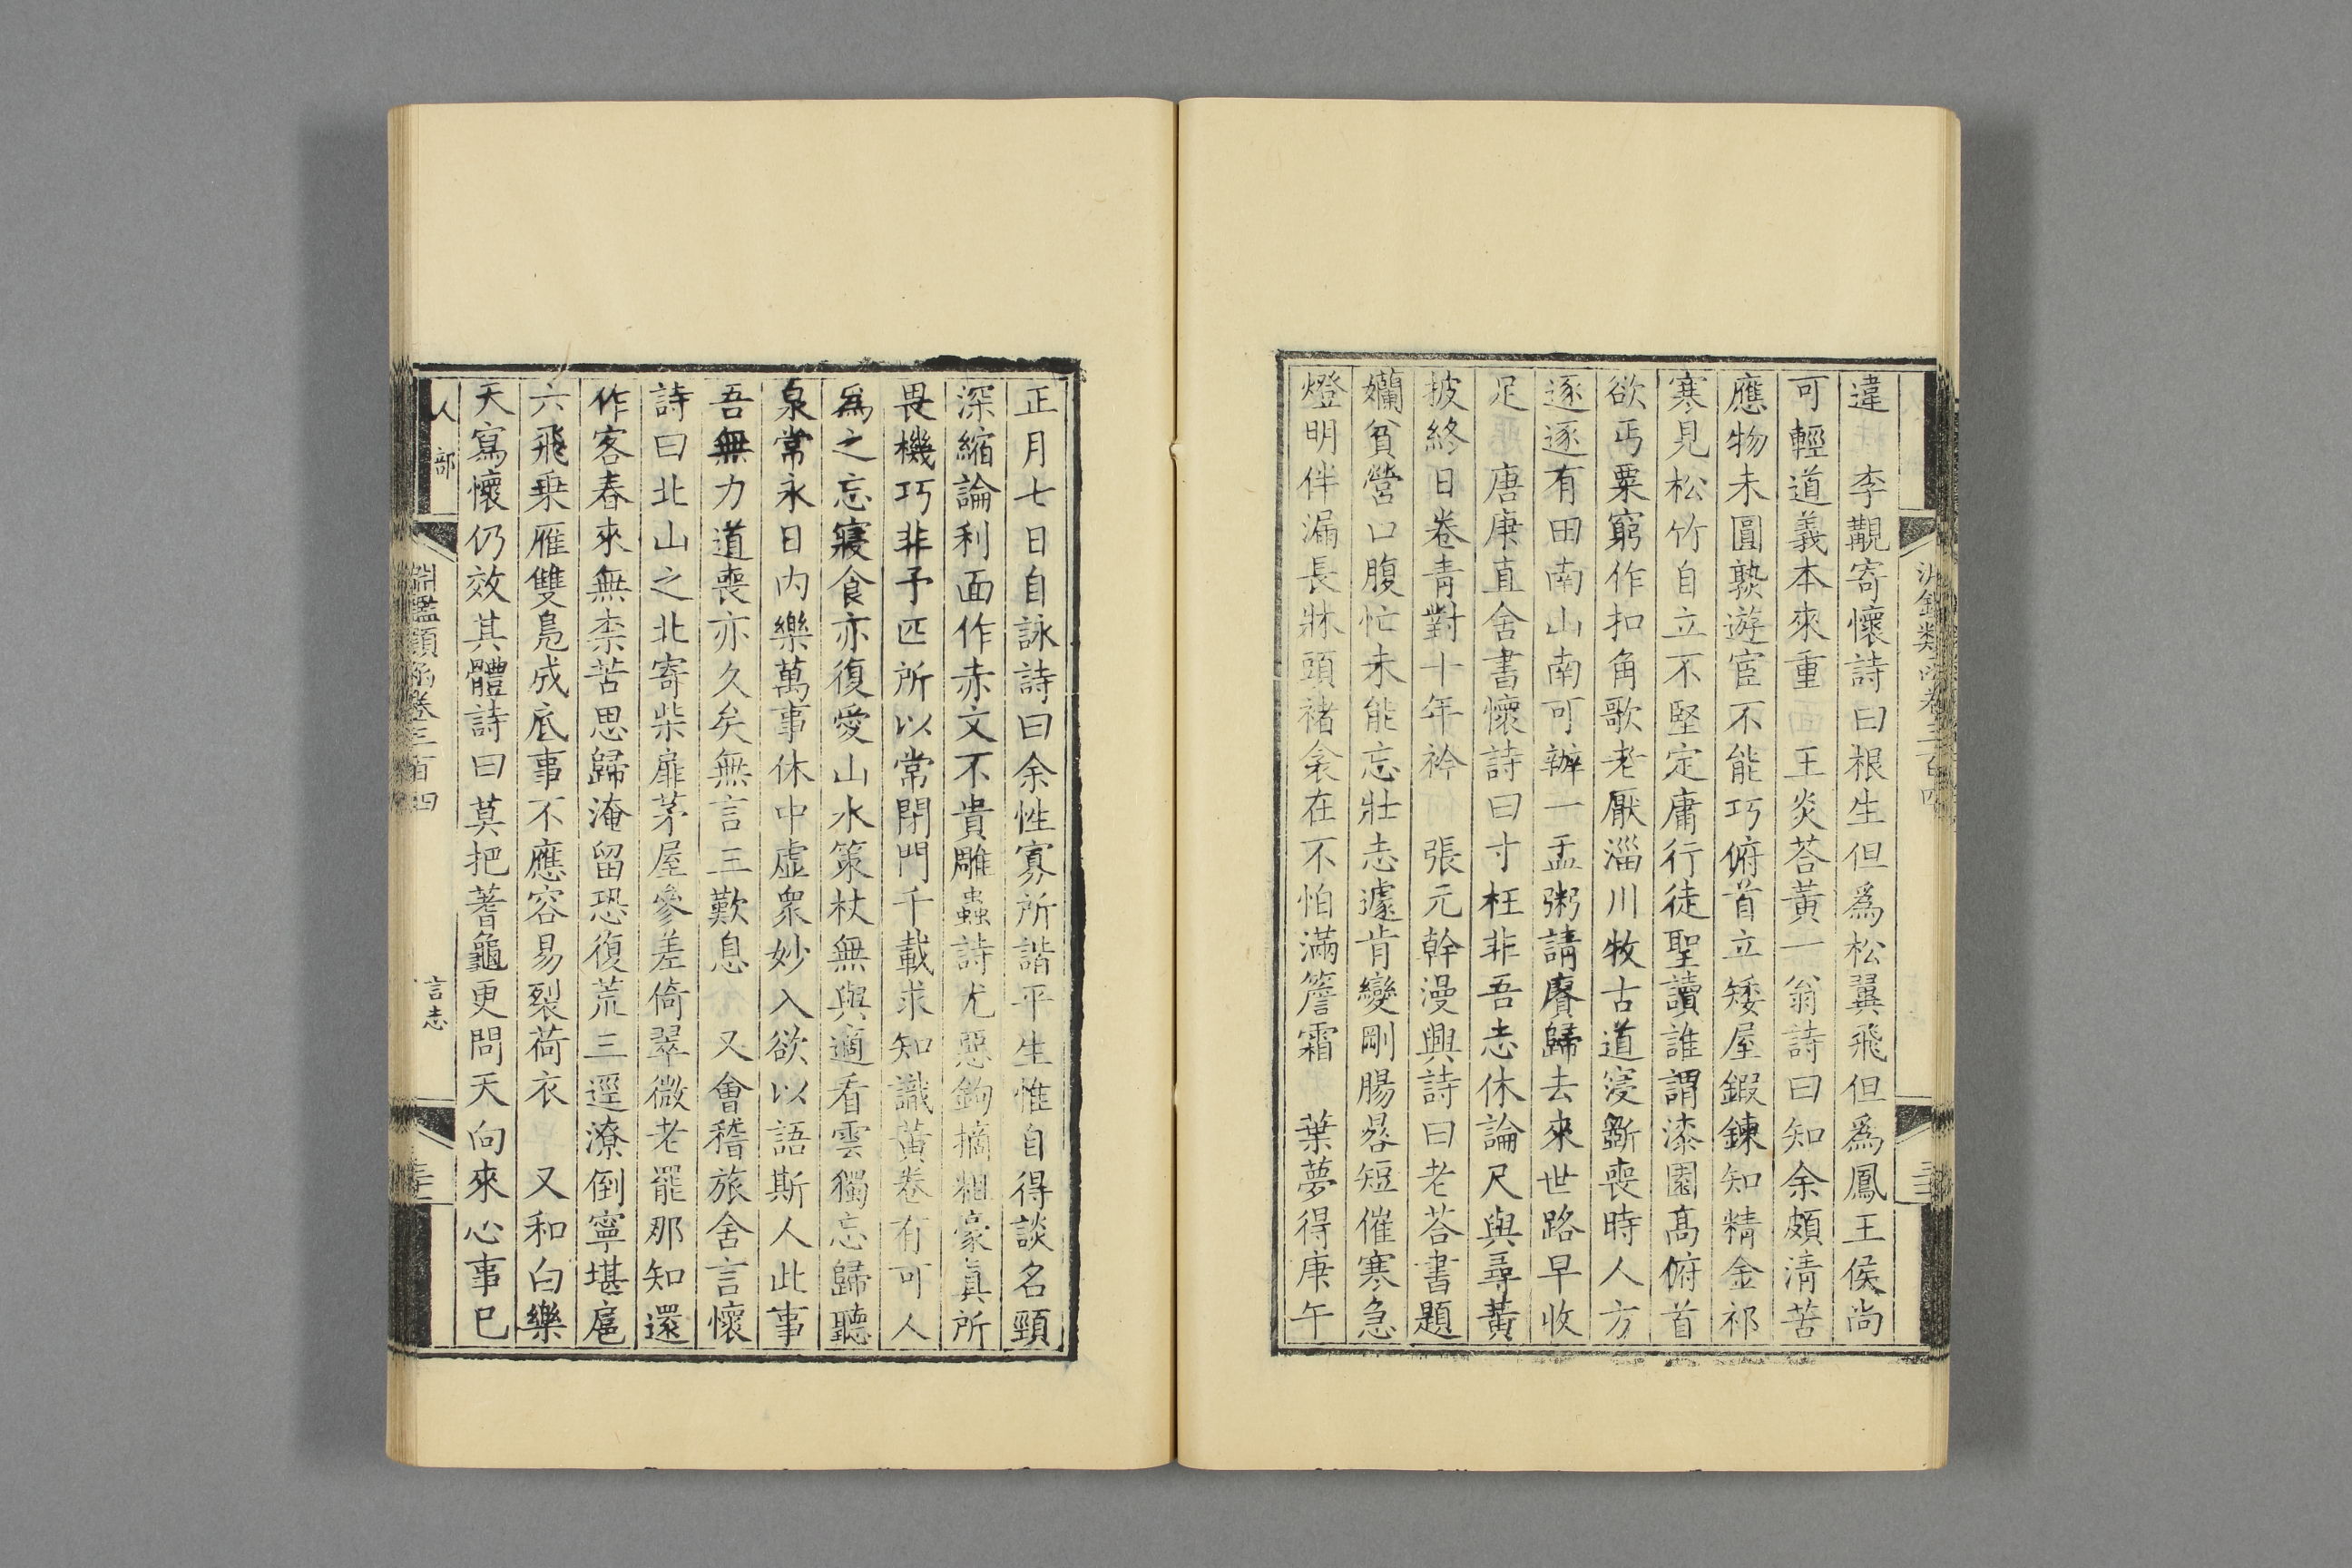 違 李覯寄懷詩曰根生但爲松翼飛但爲鳳王侯尚
可輕道義本來重 王炎荅黃一翁詩曰知余頗淸苦
應物未圓熟遊宦不能巧俯首立矮屋鍜鍊知精金祁
寒見松竹自立不堅定庸行徒聖讀誰謂漆園髙俯首
欲丐粟窮作扣角歌老厭淄川牧古道寖斵喪時人方
逐逐有田南山南可辦一盂粥請賡歸去來世路早收
足 唐庚直舍書懷詩曰寸枉非吾志休論尺與尋黃
披終日卷靑對十年衿 張元幹漫興詩曰老荅書題
嬾貧營口腹忙未能忘壯志遽肯變剛腸晷短催寒急
燈明伴漏長牀頭禇衾在不怕滿簷霜 葉夢得庚午
正月七日自詠詩曰余性寡所諧平生惟自得談名頸
深縮論利面作赤文不貴雕蟲詩尤惡鉤摘粗豪眞所
畏機巧非予匹所以常閉門千載求知識黃卷有可人
爲之忘寢食亦復愛山水策杖無與適看雲獨忘歸聽
泉常永日内樂萬事休中虛衆妙入欲以語斯人此事
吾無力道喪亦久矣無言三歎息 又會稽旅舍言懷
詩曰北山之北寄柴扉茅屋參差倚翠微老罷那知還
作客春來無柰苦思歸淹留恐復荒三逕潦倒寧堪扈
六飛乗雁雙鳧成底事不應容易裂荷衣 又和白樂
天寫懷仍效其體詩曰莫把蓍龜更問天向來心事巳
人部
淵鑑類函卷三百四
言志